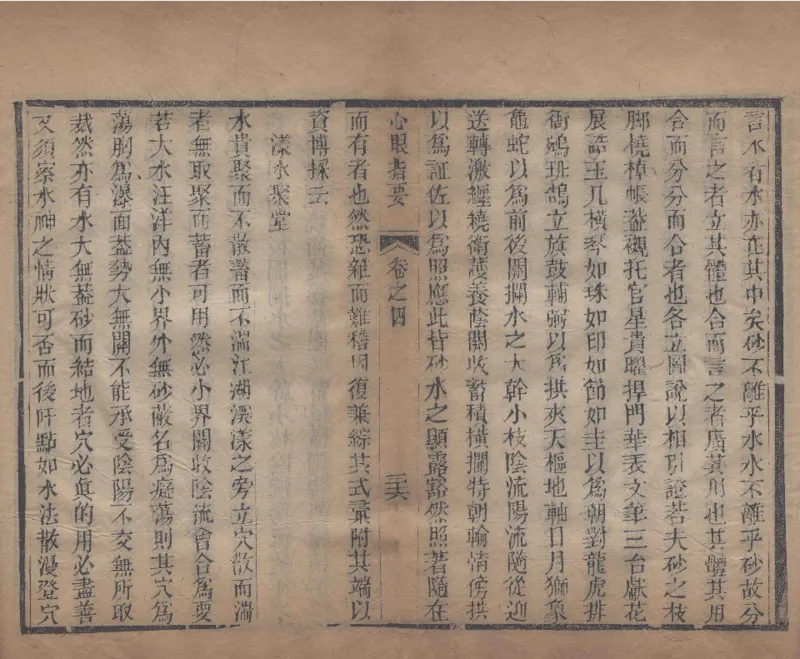 言水有水亦在其中矣砂不離乎水水不離乎砂故分
而言之者立其體也合而言之者廣其用也其體其用
合而分分而合者也各立圖說以相引證若夫砂之枝
腳橈棹帳蓋襯托官星貴曜捍門華表文筆三台獻花
展誥玉几橫琴如珠如印如節如圭以為朝對龍虎排
衙鵷班鵠立旗鼓輔弼以為拱夾天樞地軸日月獅象
龜蛇以為前後關攔水之大幹小枝陰流陽流隨從迎
送轉激纏繞衛護養蔭關收蓄積橫攔特朝輸情傍拱
以為証佐以為照應此皆砂水之顯露豁然照著隨在
心眼指要
卷之四
三六
而有者也然恐雜而難稽因復兼綜其式彙附其端以
資博採云
漾水聚堂
水貴聚而不散蓄而不湍江湖溪漾之旁立穴散而湍
者無取聚而蓄者可用然必小界關收陰流會合為要
若大水汪洋內無小界外無砂蔽名為癡蕩則其穴為
蕩胸為瀑面葢勢大無關不能承受陰陽不交無所取
裁然亦有水大無葢砂而結地者穴必真的用必盡善
又須察水神之情狀可否而後阡點如水法散漫登穴